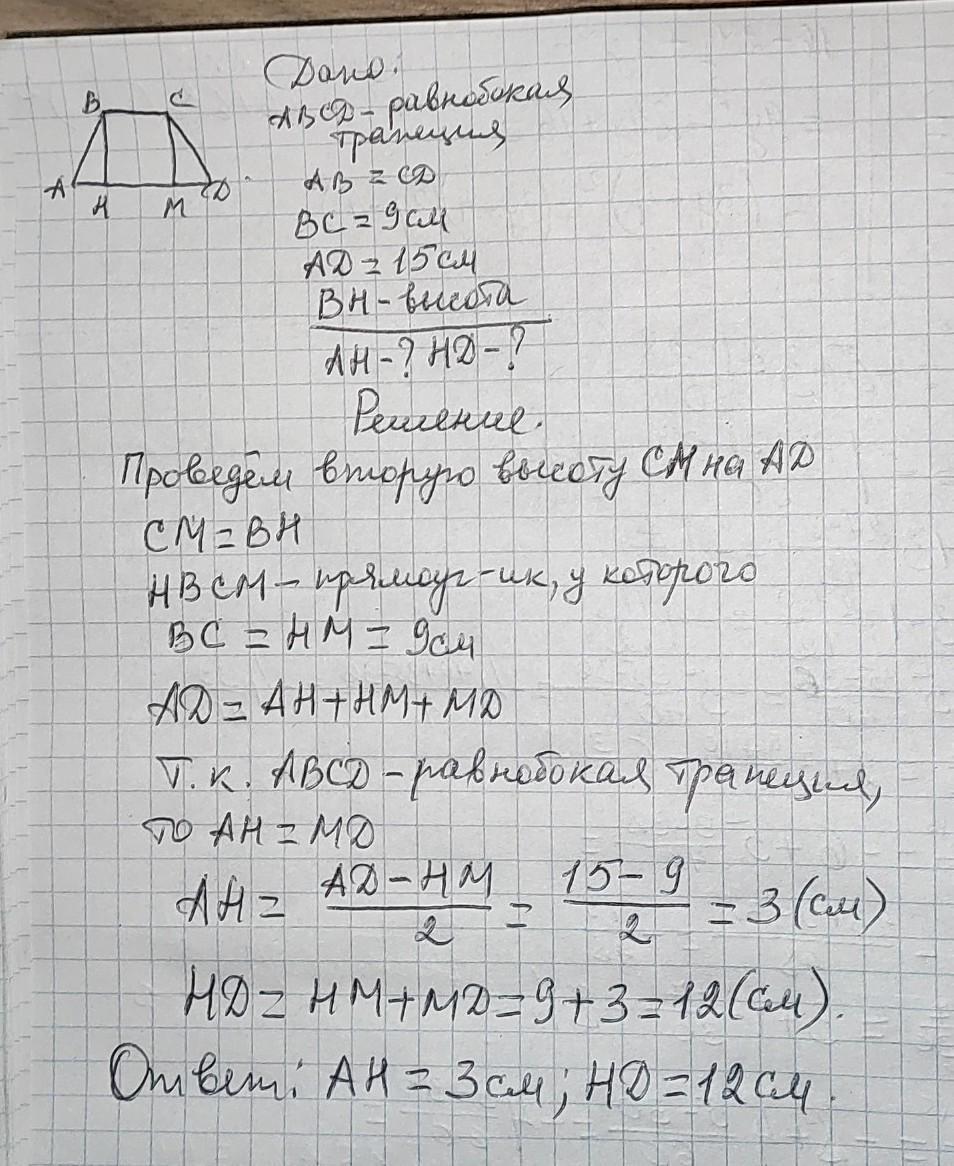 B C
A H M D
Дано:
ABCD - равнобокая
трапеция
AB = CD
BC = 9 см
AD = 15 см
BH - высота
AH - ? HD - ?
Решение.
Проведём вторую высоту CM на AD
CM = BH
HBCM - прямоуг-ик, у которого
BC = HM = 9 см
AD = AH + HM + MD
Т.к. ABCD - равнобокая трапеция,
то AH = MD
AH = (AD - HM)/2 = (15 - 9)/2 = 3 (см)
HD = HM + MD = 9 + 3 = 12 (см).
Ответ: AH = 3 см; HD = 12 см.